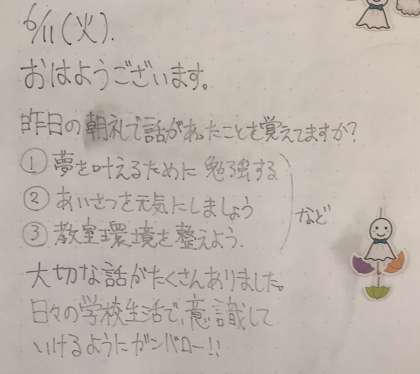 6/11(火).
おはようございます。
昨日の朝礼で話があったことを覚えてますか?
① 夢を叶えるために 勉強する
② あいさつを元気にしましょう
③ 教室環境を整えよう.
など
大切な話がたくさんありました。
日々の学校生活で、意識して
いけるようにガンバロー!!